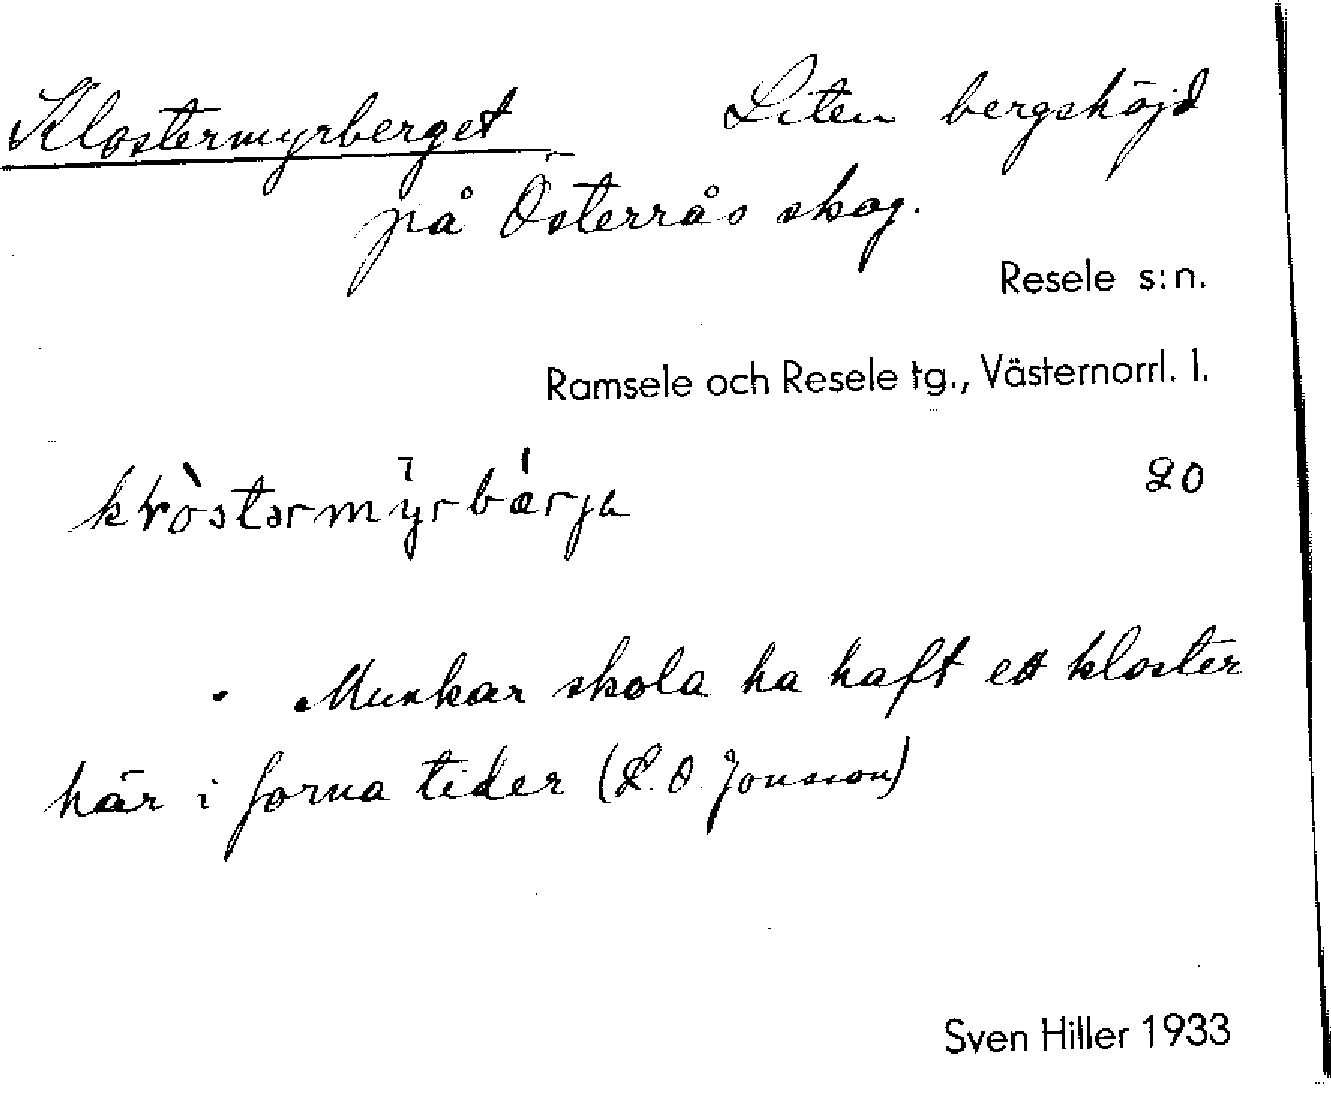 Klostermyrberget Liten bergshöjd
på Österrås skog.
Resele s:n.
Ramsele och Resele tg., Västernorrl. l.
20
Munkar skola ha haft ett kloster
här i forna tider (L. O. Jonsson)
Sven Hiller 1933